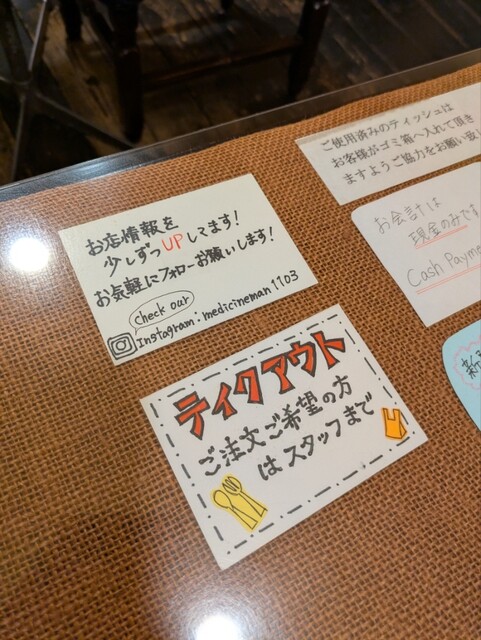 ご使用済みのティッシュは
お客様がゴミ箱へ入れて頂き
ますようご協力をお願い致し
お店情報を
少しずつUPしてます!
お気軽にフォローお願いします!
check our
Instagram:medicineman1103
お会計は
現金のみです
Cash Payme
ティクアウト
ご注文ご希望の方
はスタッフまで